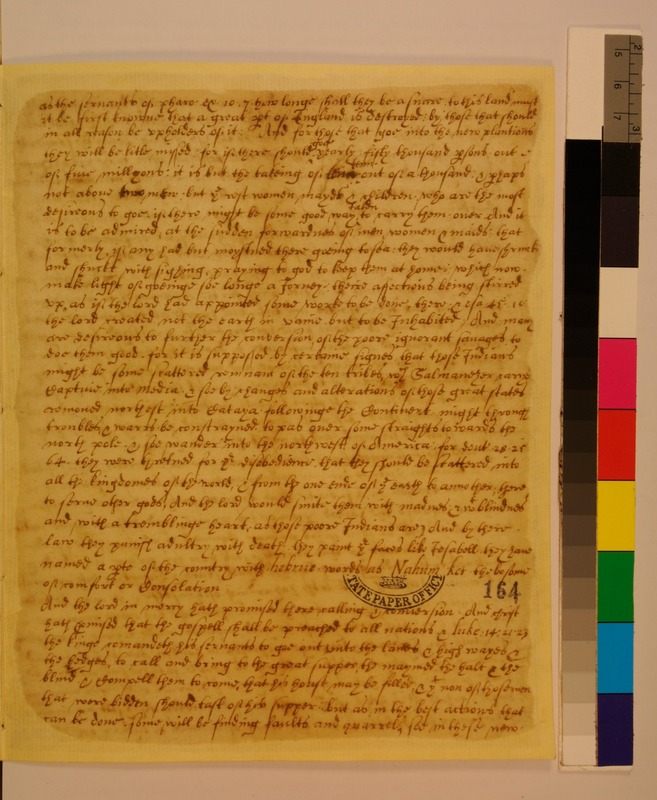 as the servants of pharo ex. 10. 7 how longe shall they be a snare, to this land must
it be first knowne that a great pt of England is destroyed: by those that should
in all reason be vpholders of it: And for those that goe into the new plantions
they will be litle missed: for if there should goe yearly fifty thousand psons out
of five millyons: it is but the takeing of ten from out of a thousand. & phaps
not above two men. but ye rest women, mayds & children. who are the most
desireous to goe. if there might be some good way taken to carry them over And it
is to be admired, at the sudden forwardnes of men, women & maids: that
formerly, if any had but moystned there goeing to sea. they would have shrunk
and shrill with sighing, praying to god to keep them at home: which now
make light of goeinge soe longe a Jorney. there afections being stirred
vp, as if the lord had appointed some worke to be done, there &
the lord created not the earth in vaine. but to be Inhabited And many
are desireous to further the conversion of the poore ignorant savages to
doe them good. for it is supposed by certaine signes that those Indians
might be some scattered remnant of the ten tribes, Salmaneser
Captive into Media, & soe by changes and alterations of those great states
removed northest into Cataya followinge the Continent might through
troubles & warrs be constrayned to pas over some straights towards the
north pole & soe wander into the northwest of America: for deut. 28. 25
64. they were thretned for ye disobedience that they should be scattered into
all the kingdomes of the world, & from the one ende of ye earth to annother. there
to serve other gods, And the lord would smite them with madnes & wth blindnes
and with a tremblinge heart, as those poore Indians are, And by there
law they punish adultry with death. they paint ye faces like Jesabell they have
named a pte of the country with hebrue words as Nahum ket the besome
of comfort or Consolation
STATE PAPER OFFICE
164
And the lord in mercy hath promised there calling & conversion. And christ
hath pmised that the gospell shall be preached to all nations & luke. 14. 21. 23
the kinge comandeth his servants to goe out vnto the lanes & high wayes &
the hedges, to call and bring to the great supper the maymed the halt & the
blind & Compell them to come, that his house may be filled & yt non of those men
that were bidden should tast of his supper. but as in the best actions that
can be done. some will be finding faults and quarrels, soe in these new